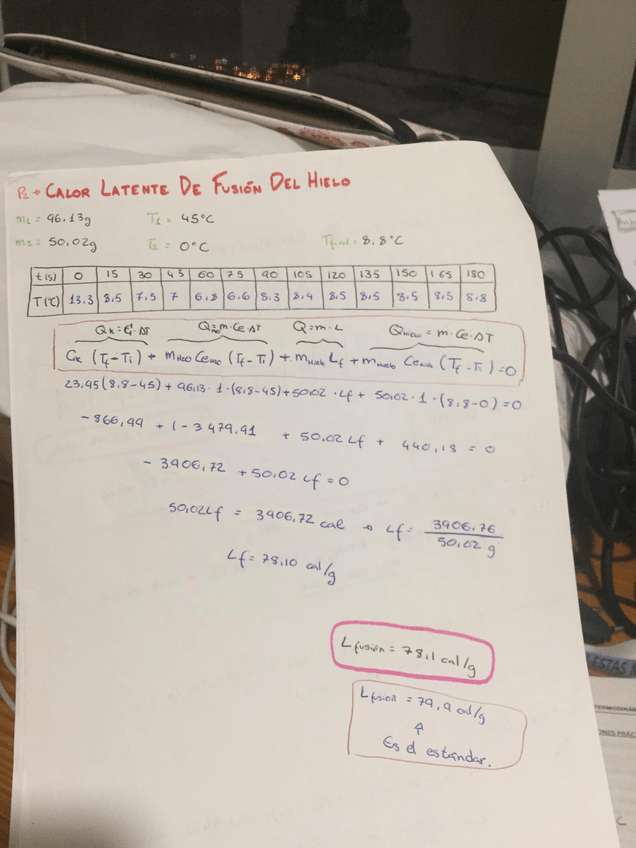 P2 → CALOR LATENTE DE FUSIÓN DEL HIELO
m1 = 96,13g T1 = 45°C
m2 = 50,02g T2 = 0°C Tfinal = 8,8°C
t(s) 0 15 30 45 60 75 90 105 120 135 150 165 180
T(°C) 13.3 8.5 7.5 7 6.8 6.6 8.3 8.4 8.5 8.5 8.5 8.5 8.8
Qk = Ck·ΔT QH2O = m·Ce·ΔT Q = m·L Qhielo = m·Ce·ΔT
Ck (Tf-Ti) + mH2O CeH2O (Tf-Ti) + mhielo Lf + mhielo Cehielo (Tf-Ti) = 0
23,95(8,8-45) + 96,13·1·(8,8-45) + 50,02·Lf + 50,02·1·(8,8-0) = 0
-866,99 + (-3479,91 + 50,02 Lf + 440,18 = 0
- 3906,72 + 50,02 Lf = 0
50,02Lf = 3906,72 cal → Lf = 3906,76 / 50,02 g
Lf = 78,10 cal/g
Lfusión = 78,1 cal/g
Lfusión = 79,9 cal/g
Es el estándar.
ESTAS
TERMODINÁM
ONES PRÁC